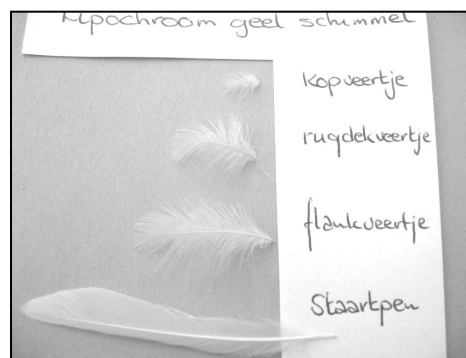 Lipochroom geel schimmel
kopveertje
rugdekveertje
flankveertje
Staartpen